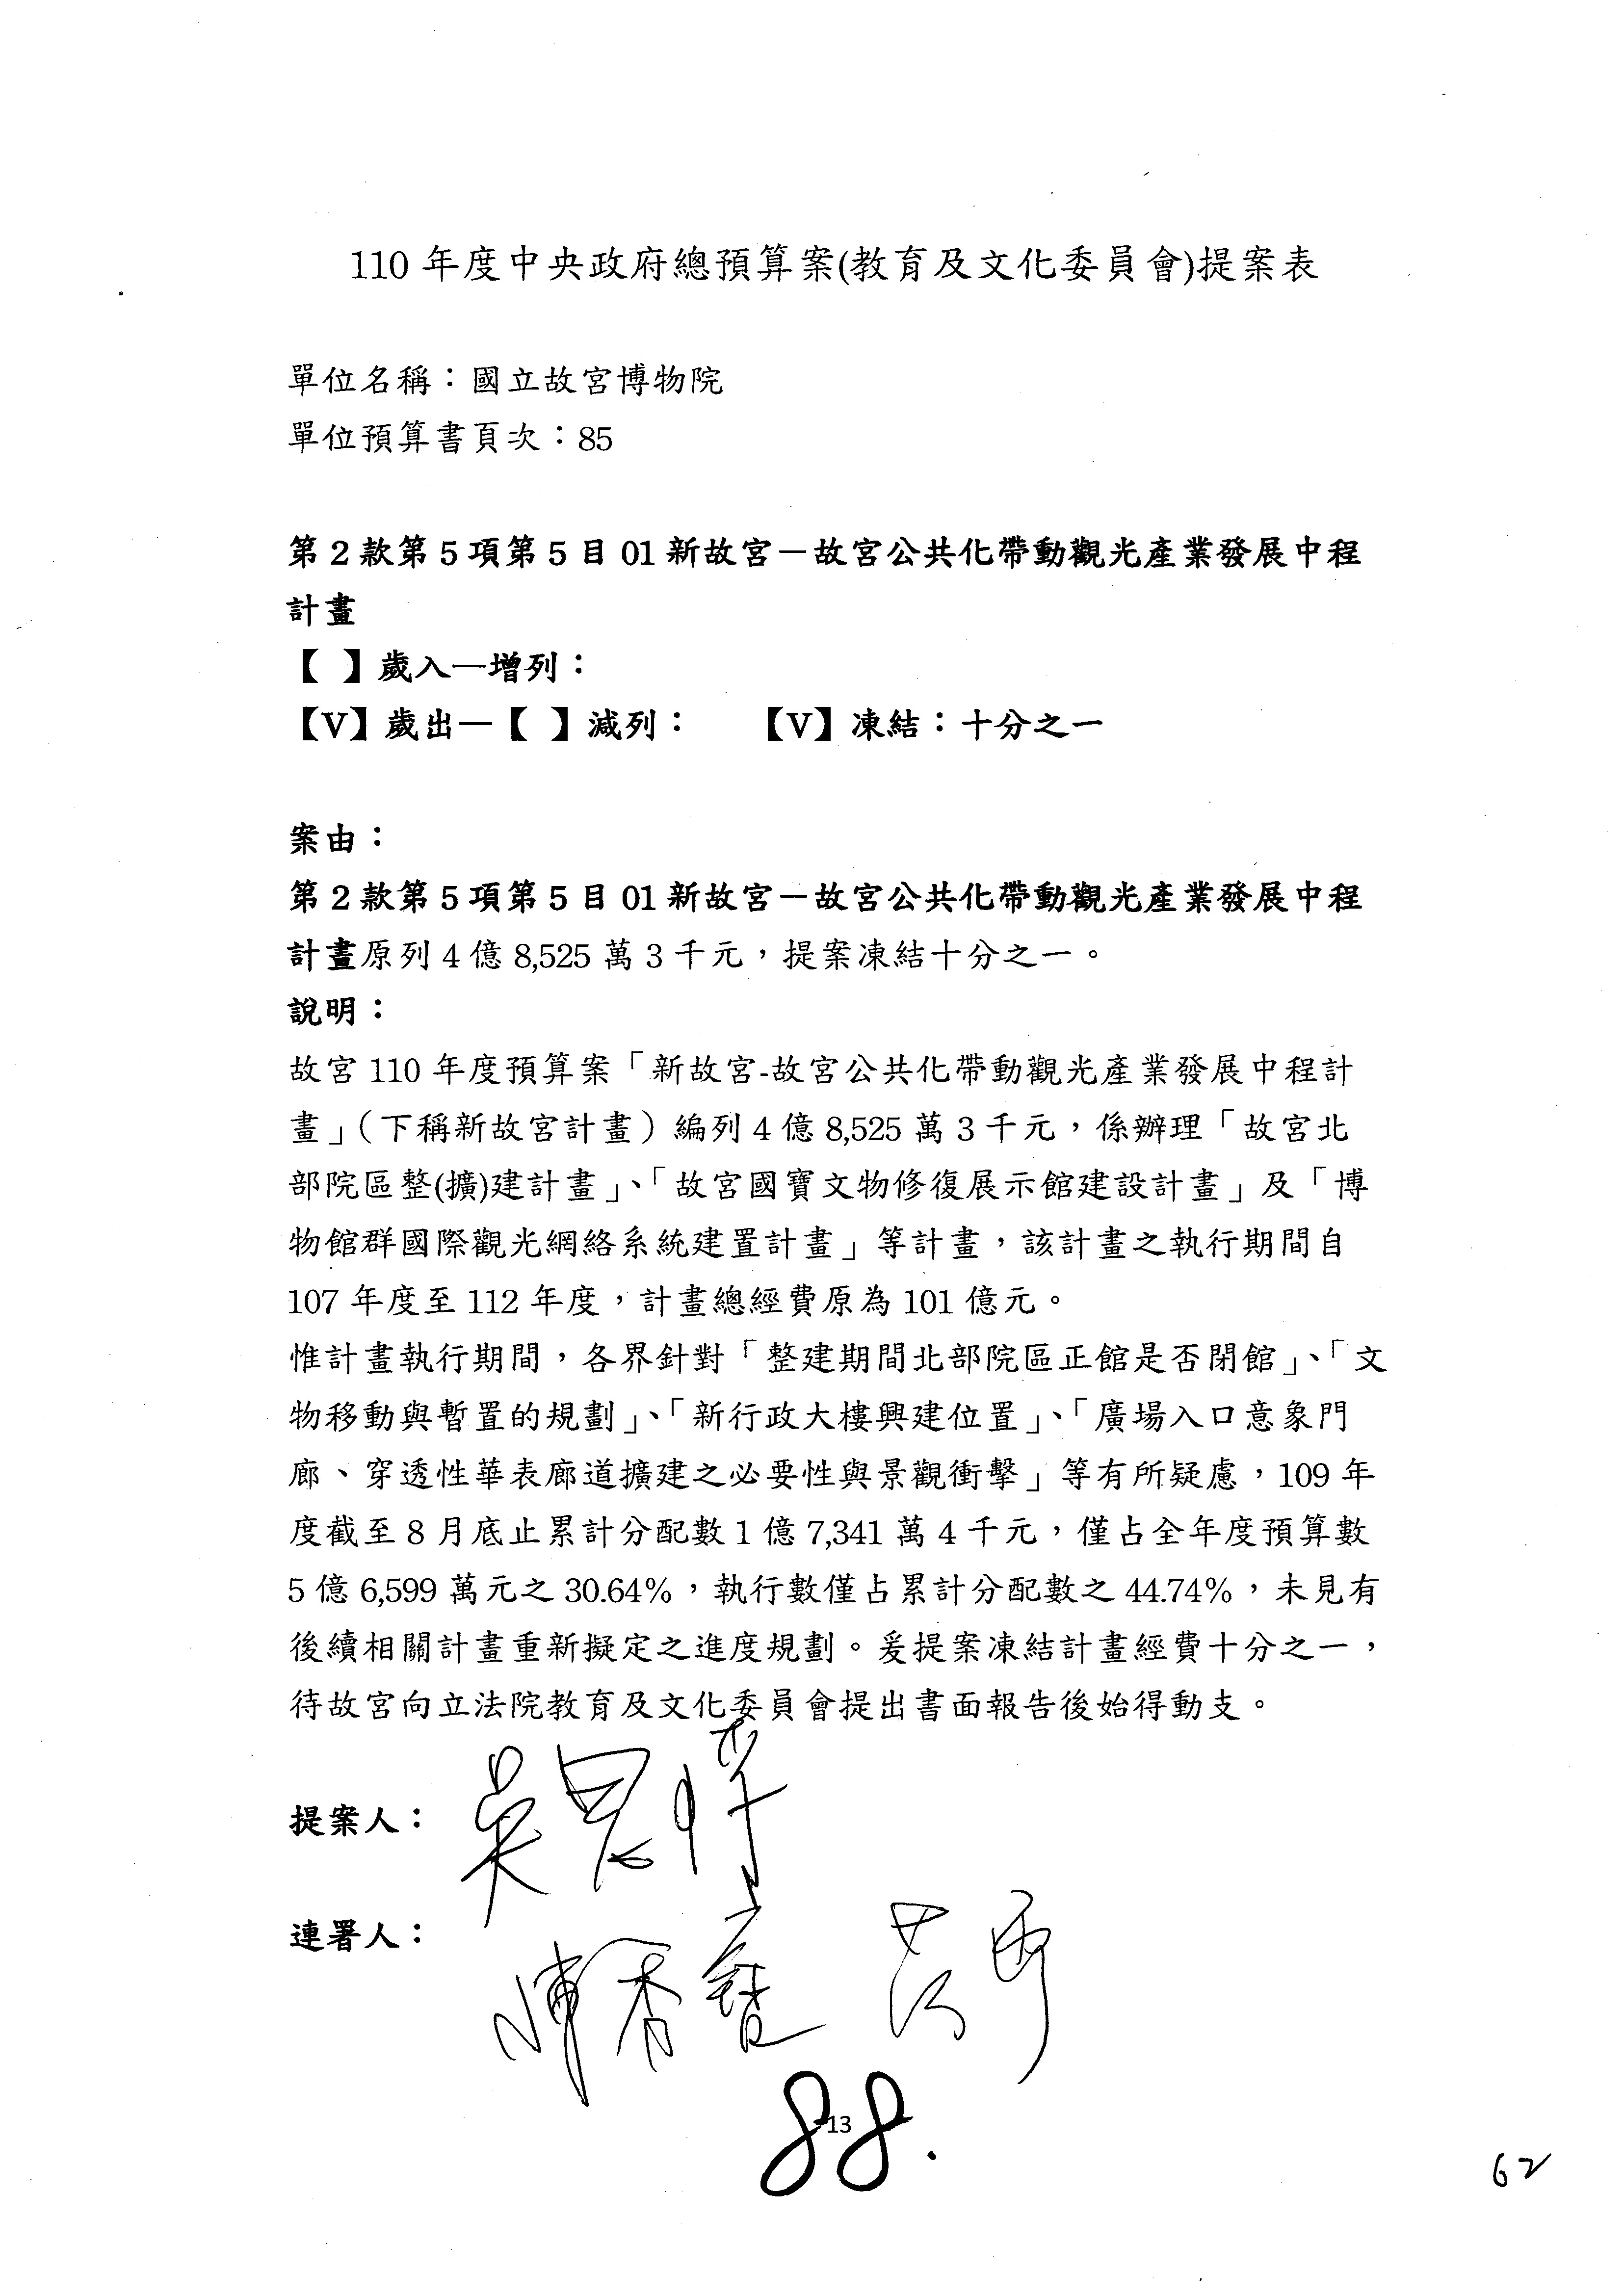 110 年度中央政府總預算案(教育及文化委員會)提案表
單位名稱：國立故宮博物院
單位預算書頁次：85
第 2 款第 5 項第 5 目 01 新故宮－故宮公共化帶動觀光產業發展中程
計畫
【 】歲入—增列：
【V】歲出—【 】減列： 【V】凍結：十分之一
案由：
第 2 款第 5 項第 5 目 01 新故宮－故宮公共化帶動觀光產業發展中程
計畫原列 4 億 8,525 萬 3 千元，提案凍結十分之一。
說明：
故宮 110 年度預算案「新故宮-故宮公共化帶動觀光產業發展中程計
畫」（下稱新故宮計畫）編列 4 億 8,525 萬 3 千元，係辦理「故宮北
部院區整(擴)建計畫」、「故宮國寶文物修復展示館建設計畫」及「博
物館群國際觀光網絡系統建置計畫」等計畫，該計畫之執行期間自
107 年度至 112 年度，計畫總經費原為 101 億元。
惟計畫執行期間，各界針對「整建期間北部院區正館是否閉館」、「文
物移動與暫置的規劃」、「新行政大樓興建位置」、「廣場入口意象門
廊、穿透性華表廊道擴建之必要性與景觀衝擊」等有所疑慮，109 年
度截至 8 月底止累計分配數 1 億 7,341 萬 4 千元，僅占全年度預算數
5 億 6,599 萬元之 30.64%，執行數僅占累計分配數之 44.74%，未見有
後續相關計畫重新擬定之進度規劃。爰提案凍結計畫經費十分之一，
待故宮向立法院教育及文化委員會提出書面報告後始得動支。
提案人：
連署人：
88.
13
62